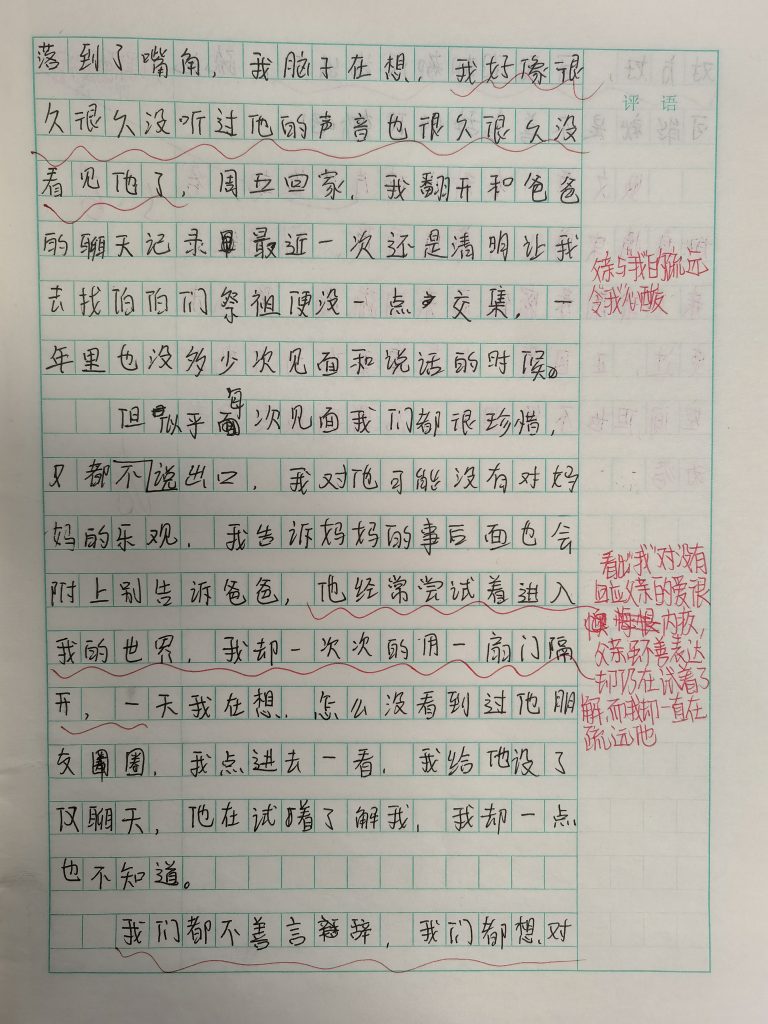 落到了嘴角，我脑子在想，我好像很
评 语
久很久没听过他的声音也很久很久没
看见他了，周五回家，我翻开和爸爸
的聊天记录最近一次还是清明让我
父亲与“我”的疏远
令我心酸
去找伯伯们祭祖便没一点交集，一
年里也没多少次见面和说话的时候。
但似乎每次见面我们都很珍惜，
又都不说出口，我对他可能没有对妈
妈的乐观，我告诉妈妈的事后面也会
附上别告诉爸爸，他经常尝试着进入
我的世界，我却一次次的用一扇门隔
开，一天我在想，怎么没看到过他朋
友圈，我点进去一看，我给他设了
仅聊天，他在试着了解我，我却一点
也不知道。
我们都不善言辞，我们都想对
看出“我”对没有
回应父亲的爱很
内疚，
父亲虽不善表达
却仍在试着了
解，而我却一直在
疏远他